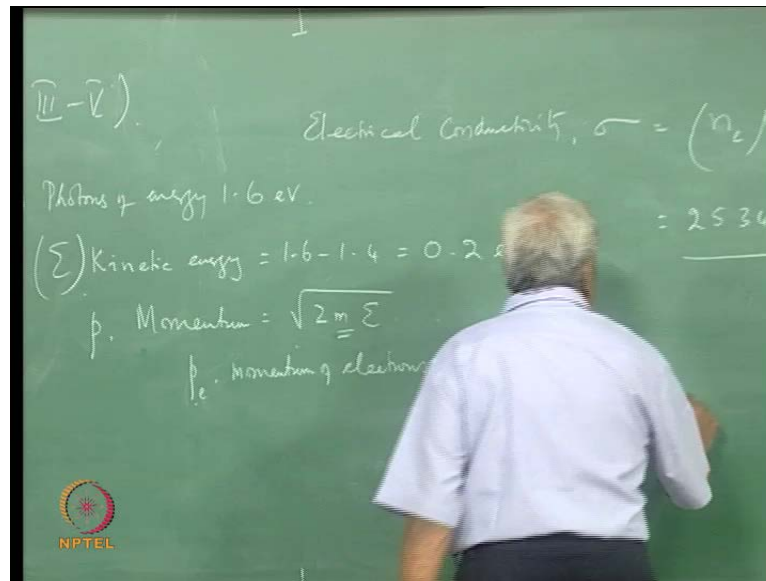 III-V).
Electrical Conductivity, σ = (n_e)
Photons of energy 1.6 eV.
= 2534
(Σ) Kinetic energy = 1.6 - 1.4 = 0.2 e
p. Momentum = √2mΣ
p_e. Momentum of electrons
NPTEL